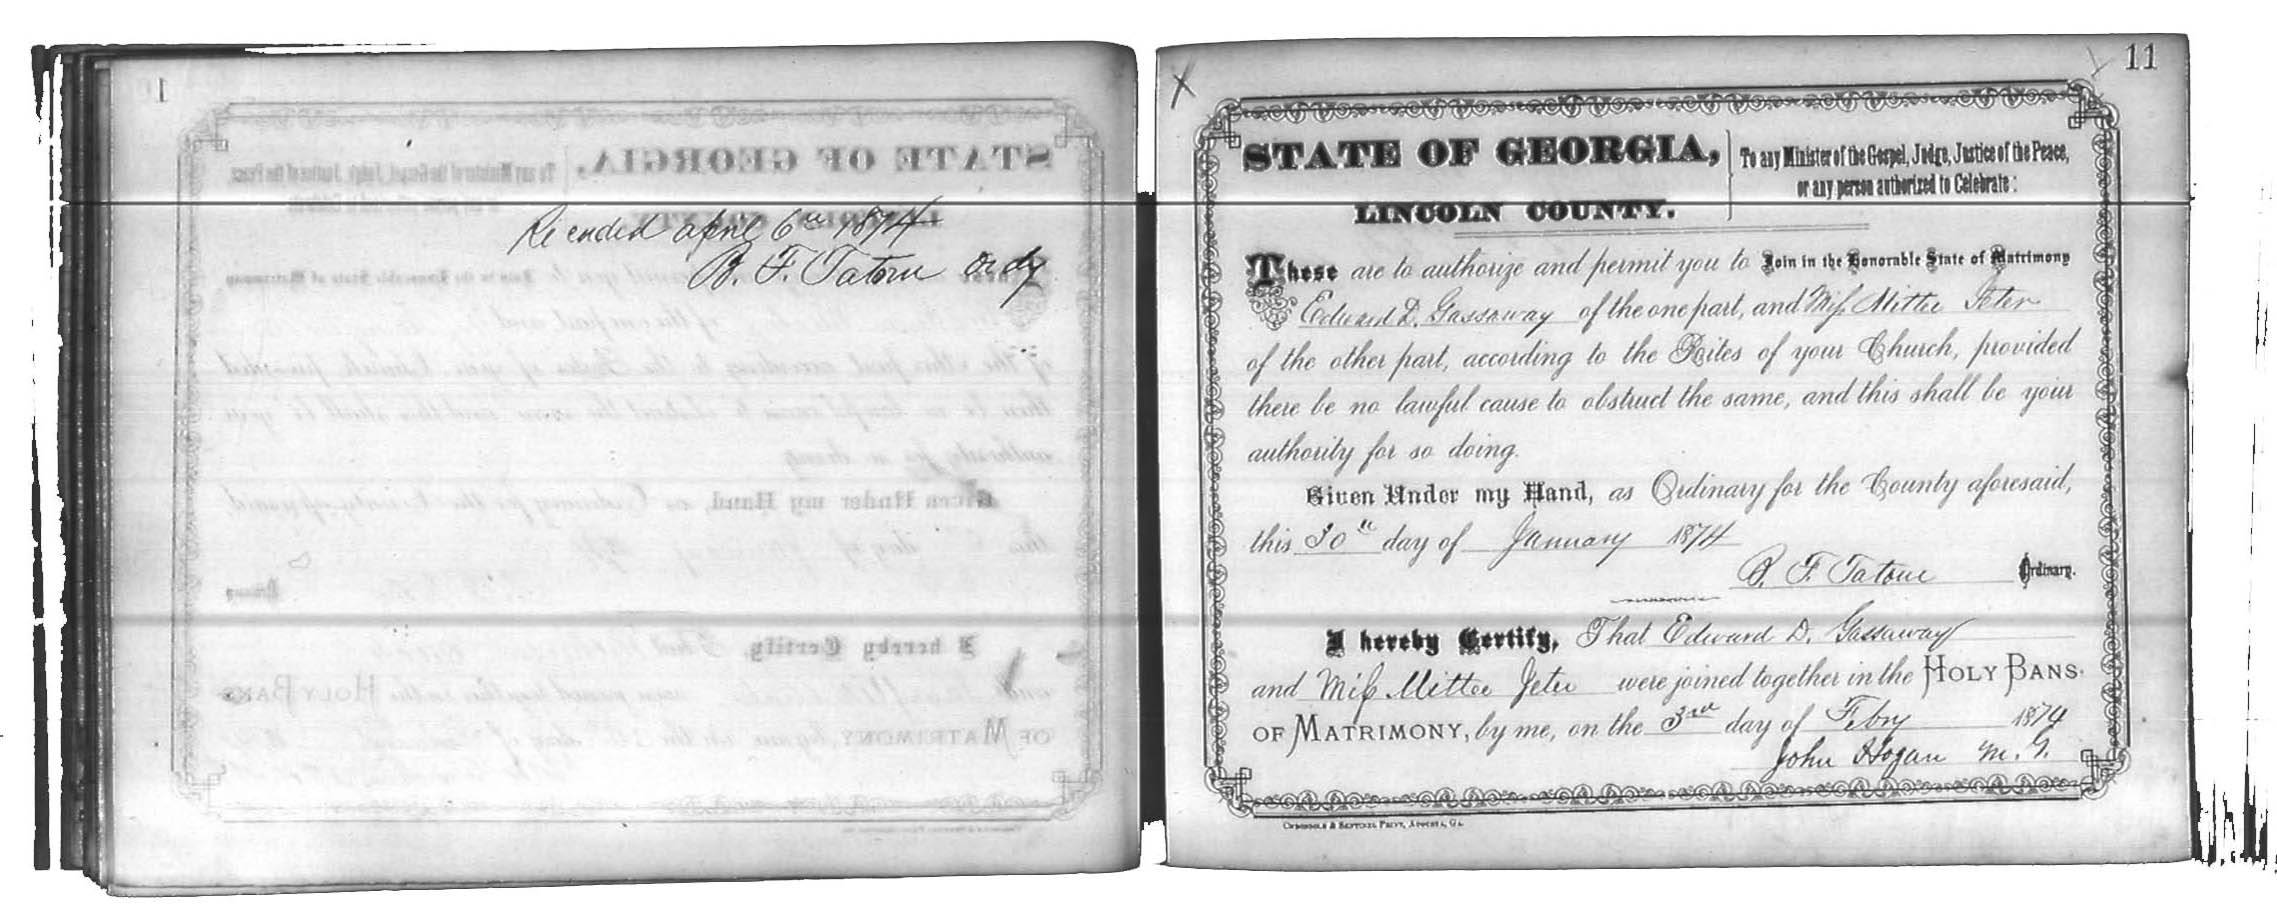 Recorded April 6th 1874
B. F. Tatom Ordy
11
X
STATE OF GEORGIA,
LINCOLN COUNTY.
To any Minister of the Gospel, Judge, Justice of the Peace,
or any person authorized to Celebrate:
These are to authorize and permit you to Join in the Honorable State of Matrimony
Edward D. Gassaway of the one part, and Miss Mittee Jeter
of the other part, according to the Rites of your Church, provided
there be no lawful cause to obstruct the same, and this shall be your
authority for so doing.
Given Under my Hand, as Ordinary for the County aforesaid,
this 30th day of January 1874
B. F. Tatom Ordinary.
I hereby Certify, That Edward D. Gassaway
and Miss Mittee Jeter were joined together in the HOLY BANS
OF MATRIMONY, by me, on the 3rd day of Febry 1874
John Hogan M. G.
CHRONICLE & SENTINEL PRINT, AUGUSTA, GA.